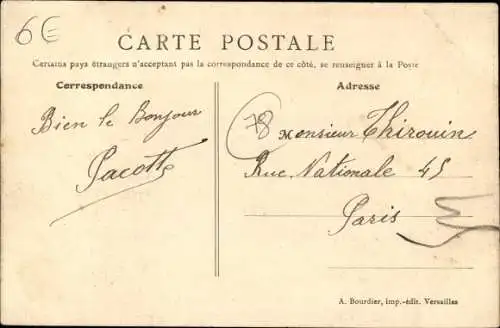 6€
CARTE POSTALE
Certains pays étrangers n'acceptant pas la correspondance de ce côté, se renseigner à la Poste
Correspondance
Bien le Bonjour
Pacotte
Adresse
78
Monsieur Thirouin
Rue Nationale 45
Paris
A. Bourdier, imp.-édit. Versailles